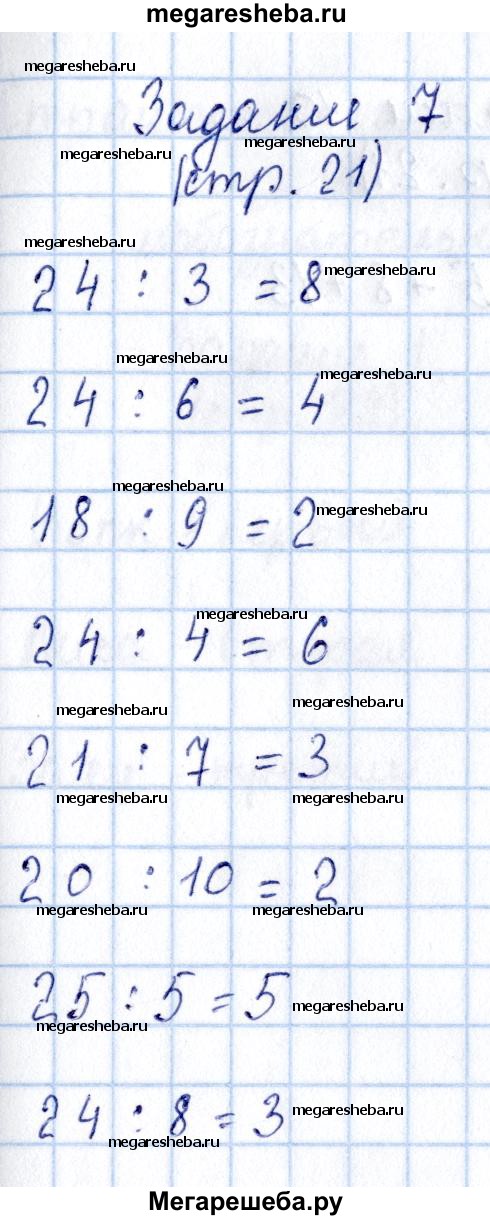 megaresheba.ru
megaresheba.ru
Задание 7
megaresheba.ru
megaresheba.ru
(стр. 21)
megaresheba.ru
24 : 3 = 8
megaresheba.ru
megaresheba.ru
megaresheba.ru
24 : 6 = 4
megaresheba.ru
18 : 9 = 2
megaresheba.ru
megaresheba.ru
24 : 4 = 6
megaresheba.ru
megaresheba.ru
21 : 7 = 3
megaresheba.ru
megaresheba.ru
20 : 10 = 2
megaresheba.ru
megaresheba.ru
25 : 5 = 5
megaresheba.ru
megaresheba.ru
24 : 8 = 3
megaresheba.ru
megaresheba.ru
Мегарешеба.ру